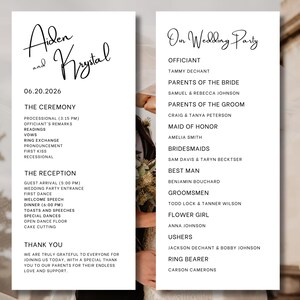 Aiden
and Krystal
06.20.2026
THE CEREMONY
PROCESSIONAL (3:15 PM)
OFFICIANT'S REMARKS
READINGS
VOWS
RING EXCHANGE
PRONOUNCEMENT
FIRST KISS
RECESSIONAL
THE RECEPTION
GUEST ARRIVAL (5:00 PM)
WEDDING PARTY ENTRANCE
FIRST DANCE
WELCOME SPEECH
DINNER (6:00 PM)
TOASTS AND SPEECHES
SPECIAL DANCES
OPEN DANCE FLOOR
CAKE CUTTING
THANK YOU
WE ARE TRULY GRATEFUL TO EVERYONE FOR
JOINING US TODAY, WITH A SPECIAL THANK
YOU TO OUR PARENTS FOR THEIR ENDLESS
LOVE AND SUPPORT.
Our Wedding Party
OFFICIANT
TAMMY DECHANT
PARENTS OF THE BRIDE
SAMUEL & REBECCA JOHNSON
PARENTS OF THE GROOM
CRAIG & TANYA PETERSON
MAID OF HONOR
AMELIA SMITH
BRIDESMAIDS
SAM DAVIS & TARYN BECKTSER
BEST MAN
BENJAMIN BOUCHARD
GROOMSMEN
TODD LOCK & TANNER WILSON
FLOWER GIRL
ANNA JOHNSON
USHERS
JACKSON DECHANT & BOBBY JOHNSON
RING BEARER
CARSON CAMERONS